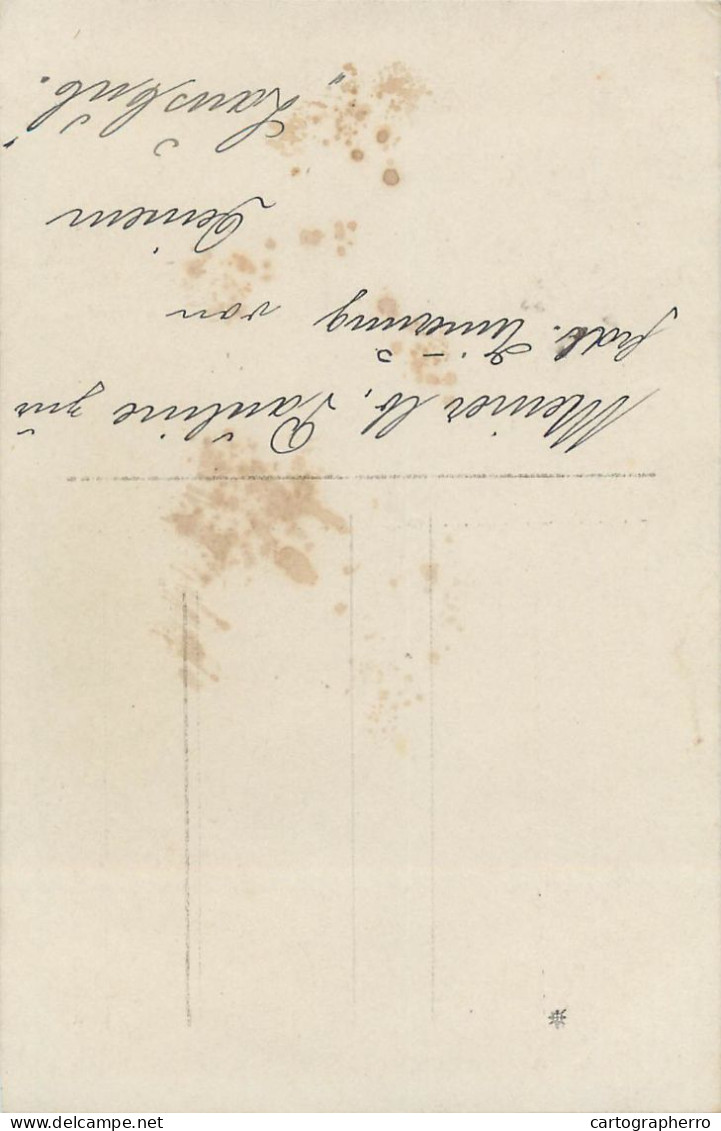 Meiner lb. Pauline zur
frdl. Erinnerung von
Deinem
"Hausknb."
delcampe.net
cartographerro